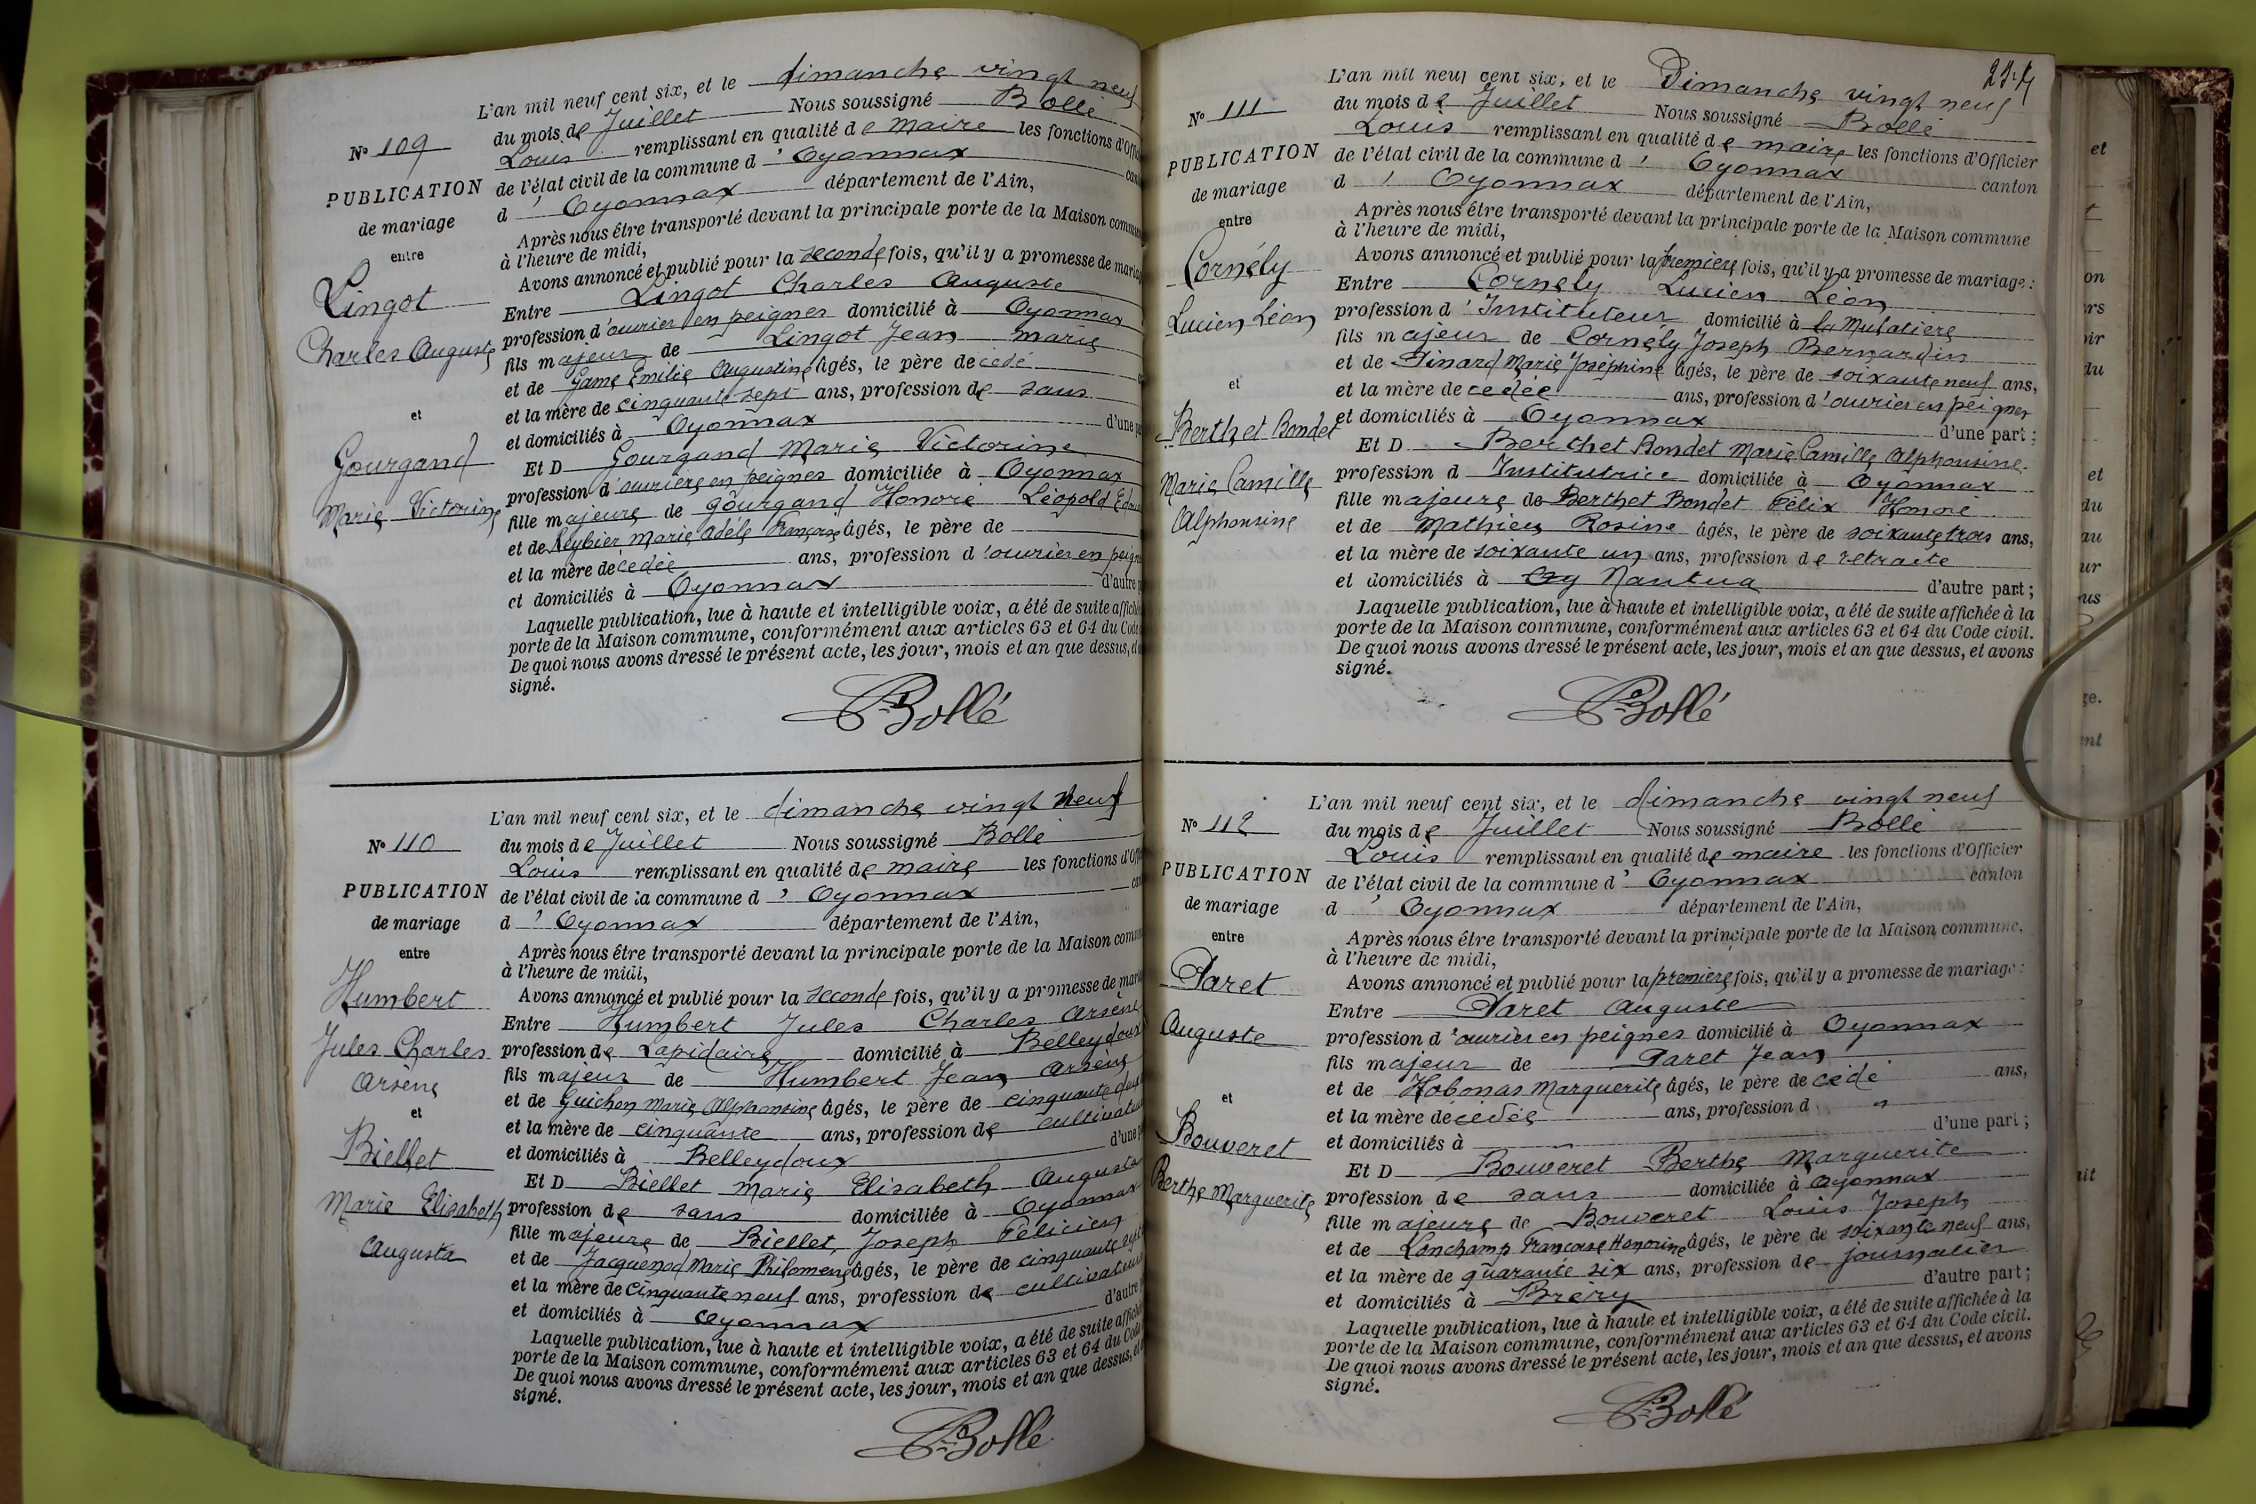 L'an mil neuf cent six, et le dimanche vingt neuf
du mois de Juillet Nous soussigné Bollé
Louis remplissant en qualité de maire les fonctions d'Offi
de l'état civil de la commune d' Oyonnax
d' Oyonnax département de l'Ain,
Après nous être transporté devant la principale porte de la Maison commu
à l'heure de midi,
Avons annoncé et publié pour la seconde fois, qu'il y a promesse de maria
Entre Lingot Charles Auguste
profession d'ouvrier en peignes domicilié à Oyonnax
fils majeur de Lingot Jean marie
et de Game Emilie Augustine âgés, le père decédé
et la mère de cinquante sept ans, profession de sans
et domiciliés à Oyonnax d'une pa
Et D Gourgand Marie Victorine
profession d'ouvrière en peignes domiciliée à Oyonnax
fille majeure de Gourgand Honoré Léopold
et de Reybier Marie Adèle Françoise âgés, le père de
et la mère décédée ans, profession d'ouvrier en peign
et domiciliés à Oyonnax d'autre
Laquelle publication, lue à haute et intelligible voix, a été de suite affiché
porte de la Maison commune, conformément aux articles 63 et 64 du Code
De quoi nous avons dressé le présent acte, les jour, mois et an que dessus, et
signé.
Bollé
N° 109
PUBLICATION
de mariage
entre
Lingot
Charles Auguste
et
Gourgand
Marie Victorine
L'an mil neuf cent six, et le dimanche vingt neuf
du mois de Juillet Nous soussigné Bollé
Louis remplissant en qualité de maire les fonctions d'Offi
de l'état civil de la commune d' Oyonnax
d' Oyonnax département de l'Ain,
Après nous être transporté devant la principale porte de la Maison commu
à l'heure de midi,
Avons annoncé et publié pour la seconde fois, qu'il y a promesse de maria
Entre Humbert Jules Charles Arsène
profession de Lapidaire domicilié à Belleydoux
fils majeur de Humbert Jean Arsène
et de Guichon Marie Alphonsine âgés, le père de cinquante
et la mère de cinquante ans, profession de cultivateur
et domiciliés à Belleydoux d'une
Et D Biellet Marie Elisabeth Augusta
profession de sans domiciliée à Oyonnax
fille majeure de Biellet Joseph Félicien
et de Jacquenod Marie Philomene âgés, le père de cinquante
et la mère de cinquante neuf ans, profession de cultivateur
et domiciliés à Oyonnax d'autre
Laquelle publication, lue à haute et intelligible voix, a été de suite affiché
porte de la Maison commune, conformément aux articles 63 et 64 du Code
De quoi nous avons dressé le présent acte, les jour, mois et an que dessus, et
signé.
Bollé
N° 110
PUBLICATION
de mariage
entre
Humbert
Jules Charles
Arsène
et
Biellet
Marie Elisabeth
Augusta
L'an mil neuf cent six, et le Dimanche vingt neuf
du mois de Juillet Nous soussigné Bollé
Louis remplissant en qualité de maire les fonctions d'Officier
de l'état civil de la commune d' Oyonnax canton
d' Oyonnax département de l'Ain,
Après nous être transporté devant la principale porte de la Maison commune
à l'heure de midi,
Avons annoncé et publié pour la première fois, qu'il y a promesse de mariage :
Entre Cornély Lucien Léon
profession d'Instituteur domicilié à la Mulatière
fils majeur de Cornély Joseph Bernardin
et de Pinard Marie Joséphine âgés, le père de soixante neuf ans,
et la mère decédée ans, profession d'ouvrier en peignes
et domiciliés à Oyonnax d'une part ;
Et D Berthet Bondet Marie Camille Alphonsine
profession d Institutrice domiciliée à Oyonnax
fille majeure de Berthet Bondet Félix Honoré
et de Mathieu Rosine âgés, le père de soixante trois ans,
et la mère de soixante un ans, profession de retraité
et domiciliés à Nantua d'autre part ;
Laquelle publication, lue à haute et intelligible voix, a été de suite affichée à la
porte de la Maison commune, conformément aux articles 63 et 64 du Code civil.
De quoi nous avons dressé le présent acte, les jour, mois et an que dessus, et avons
signé.
Bollé
N° 111
PUBLICATION
de mariage
entre
Cornély
Lucien Léon
et
Berthet Bondet
Marie Camille
Alphonsine
L'an mil neuf cent six, et le dimanche vingt neuf
du mois de Juillet Nous soussigné Bollé
Louis remplissant en qualité de maire les fonctions d'Officier
de l'état civil de la commune d' Oyonnax canton
d' Oyonnax département de l'Ain,
Après nous être transporté devant la principale porte de la Maison commune,
à l'heure de midi,
Avons annoncé et publié pour la première fois, qu'il y a promesse de mariage :
Entre Paret Auguste
profession d'ouvrier en peignes domicilié à Oyonnax
fils majeur de Paret Jean
et de Marguerite âgés, le père decédé ans,
et la mère décédée ans, profession d "
et domiciliés à d'une part ;
Et D Bouveret Berthe Marguerite
profession de sans domiciliée à Oyonnax
fille majeure de Bouveret Louis Joseph
et de Lonchamp Françoise Honorine âgés, le père de soixante neuf ans,
et la mère de quarante six ans, profession de journalier
et domiciliés à Brery d'autre part ;
Laquelle publication, lue à haute et intelligible voix, a été de suite affichée à la
porte de la Maison commune, conformément aux articles 63 et 64 du Code civil.
De quoi nous avons dressé le présent acte, les jour, mois et an que dessus, et avons
signé.
Bollé
N° 112
PUBLICATION
de mariage
entre
Paret
Auguste
et
Bouveret
Berthe Marguerite